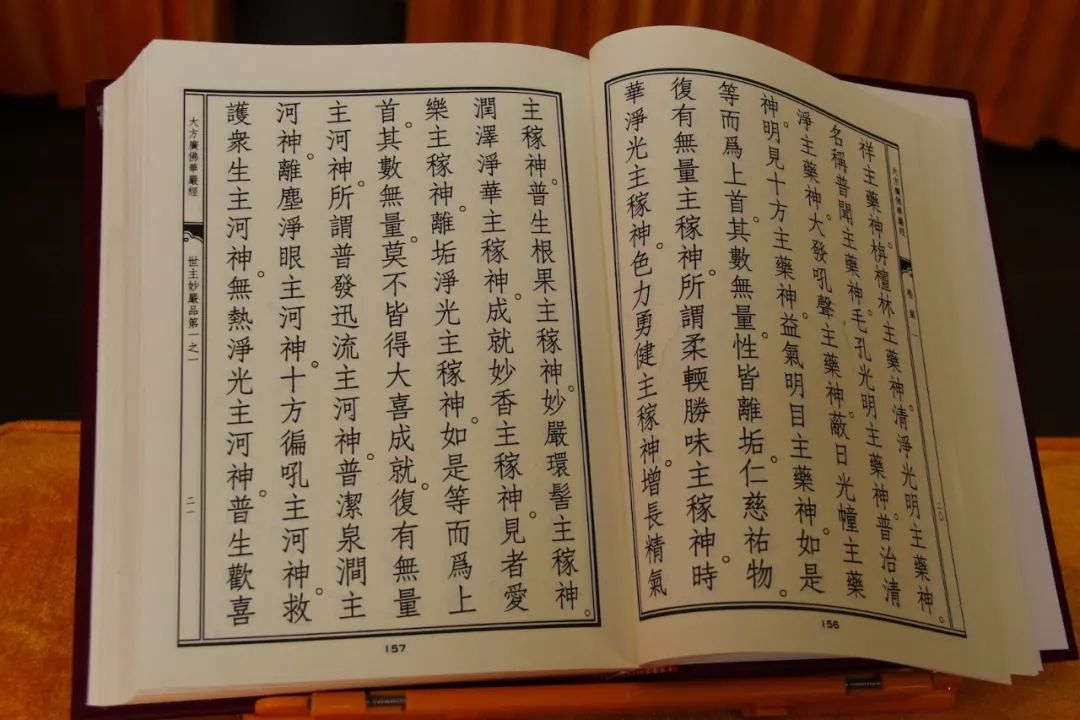 大方廣佛華嚴經 卷第一 二〇
祥主藥神。栴檀林主藥神。清淨光明主藥神。
名稱普聞主藥神。毛孔光明主藥神。普治清
淨主藥神。大發吼聲主藥神。蔽日光幢主藥
神。明見十方主藥神。益氣明目主藥神。如是
等而爲上首。其數無量。性皆離垢。仁慈祐物。
復有無量主稼神。所謂柔輭勝味主稼神。時
華淨光主稼神。色力勇健主稼神。增長精氣
156
主稼神。普生根果主稼神。妙嚴環髻主稼神。
潤澤淨華主稼神。成就妙香主稼神。見者愛
樂主稼神。離垢淨光主稼神。如是等而爲上
首。其數無量。莫不皆得大喜成就。復有無量
主河神。所謂普發迅流主河神。普潔泉澗主
河神。離塵淨眼主河神。十方徧吼主河神。救
護衆生主河神。無熱淨光主河神。普生歡喜
大方廣佛華嚴經 世主妙嚴品第一之一 二一
157